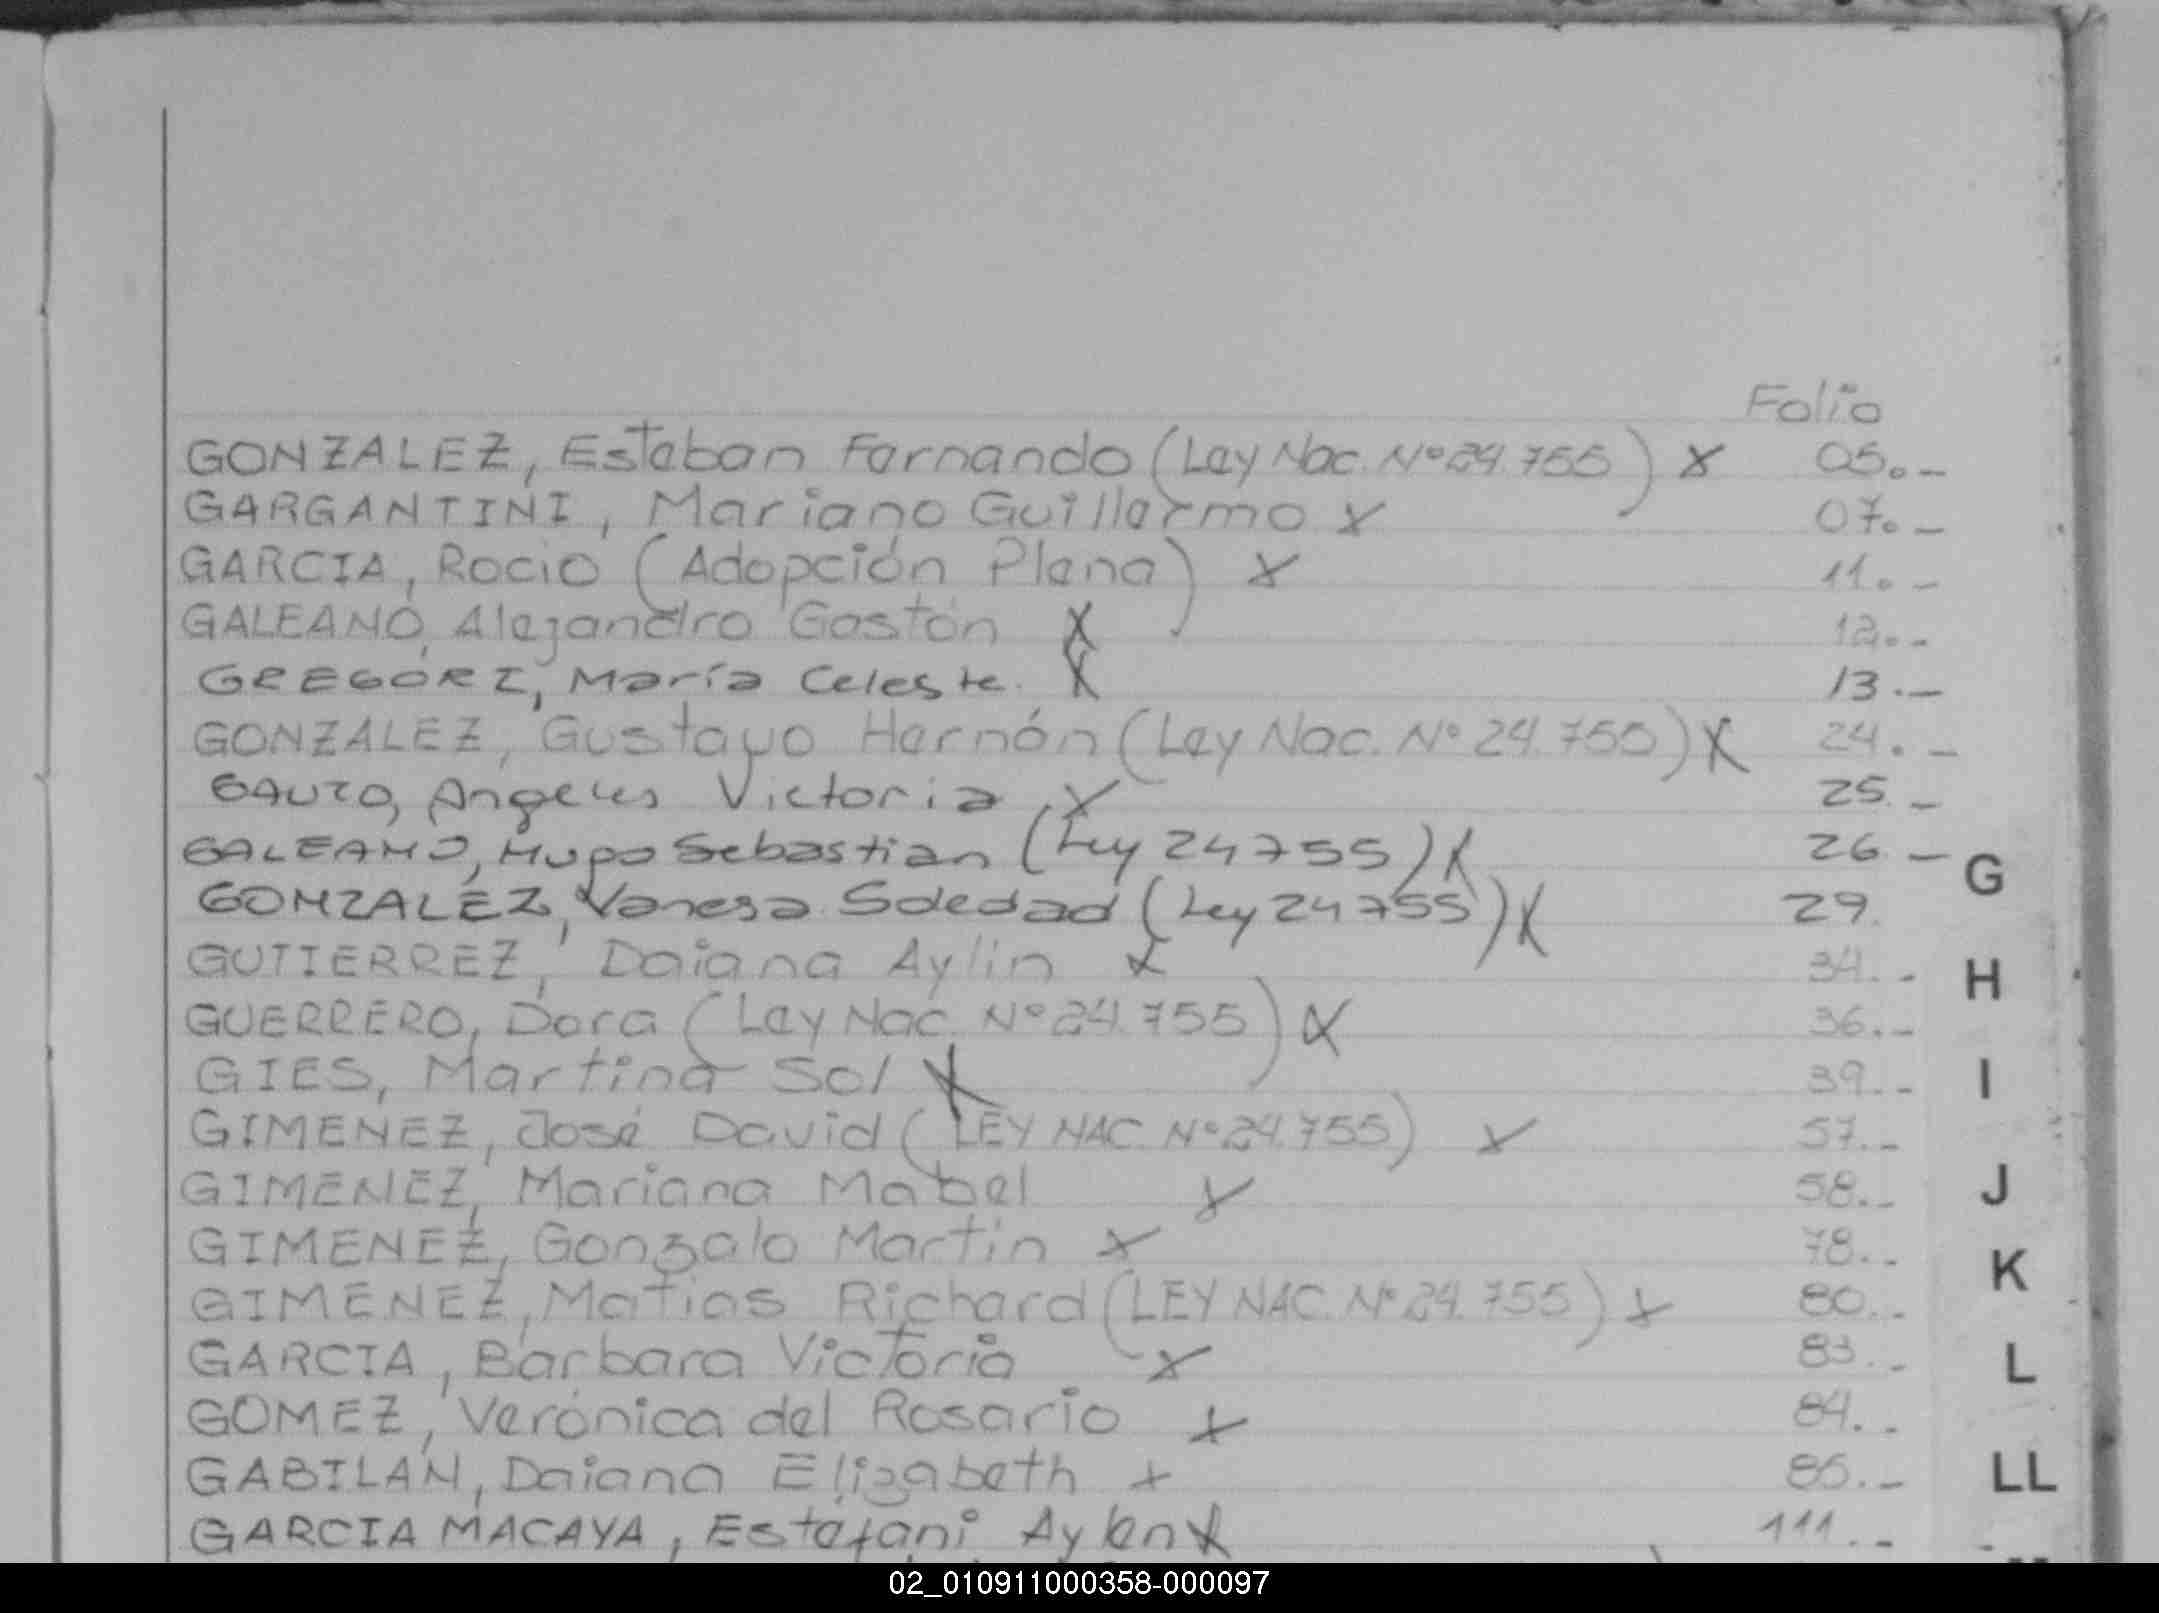 Folio
GONZALEZ, Esteban Fernando (Ley Nac. Nº 24.755) X 05.-
GARGANTINI, Mariano Guillermo X 07.-
GARCIA, Rocio (Adopción Plena) X 11.-
GALEANO, Alejandro Gastón X 12.-
GREGORI, María Celeste. X 13.-
GONZALEZ, Gustavo Hernán (Ley Nac. Nº 24.755) X 24.-
GAUTO, Angeles Victoria X 25.-
GALEANO, Hugo Sebastian (Ley 24755) X 26.-
GONZALEZ, Vanesa Soledad (Ley 24755) X 29.
G
GUTIERREZ, Daiana Aylin X 34.-
H
GUERRERO, Dora (Ley Nac. Nº 24.755) X 36.-
GIES, Martina Sol X 39.-
I
GIMENEZ, José David (LEY NAC. Nº 24.755) X 57.-
GIMENEZ, Mariana Mabel X 58.-
J
GIMENEZ, Gonzalo Martín X 78.-
K
GIMENEZ, Matías Richard (LEY NAC. Nº 24.755) X 80.-
GARCIA, Bárbara Victoria X 83.-
L
GOMEZ, Verónica del Rosario X 84.-
GABILAN, Daiana Elizabeth X 85.-
LL
GARCIA MACAYA, Estefani Aylen X 111.-
02_010911000358-000097